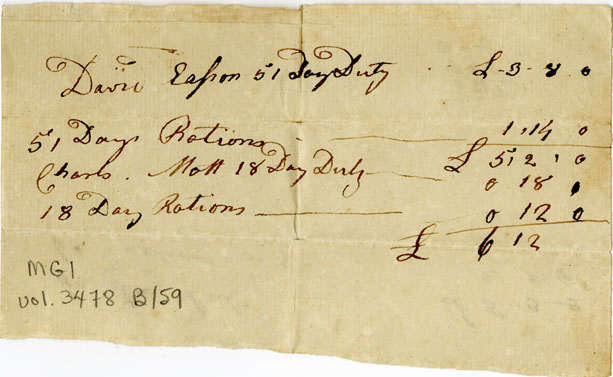 David Easson 51 Day Duty £ - 3 - 8 0
51 Days Rations 1 , 14 0
£ 5 , 2 , 0
Charls. Mott 18 Day Duty 0 18 ,
18 Day Rations 0 12 0
£ 6 12
MG1
vol. 3478 B/59